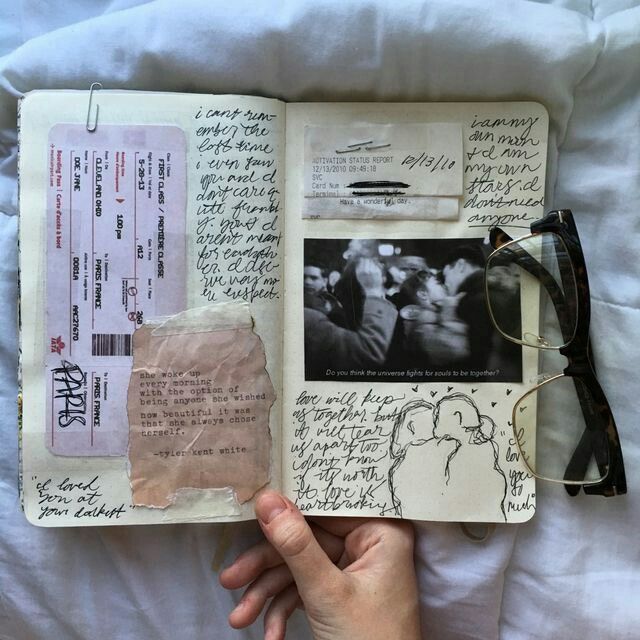 i cant rem
ember the
last time
i even saw
you and i
dont care q
uite frankl
y. you & i
arent meant
for eachoth
er. & also
we
respect.
FIRST CLASS / PREMIERE CLASSE
5-20-13
A12
1:00 pm
DOE JANE
CLEVELAND OHIO
PARIS FRANCE
Boarding Pass | Carte d'accès à bord
PARIS FRANCE
PARIS
she woke up
every morning
with the option of
being anyone she wished
how beautiful it was
that she always chose
herself.
-tyler kent white
"i loved
you at
your darkest"
MOTIVATION STATUS REPORT
12/13/2010 09:49:18
SVC
Card Num
Terminal
Have a wonderful day.
12/13/10
i am my
own man
& i am
my own
stars. i
dont need
anyone.
Do you think the universe fights for souls to be together?
love will keep
us together but
it will tear
us apart too
i dont know
if its worth
it. love is
heartbreaking
"i
love
you
so
much"